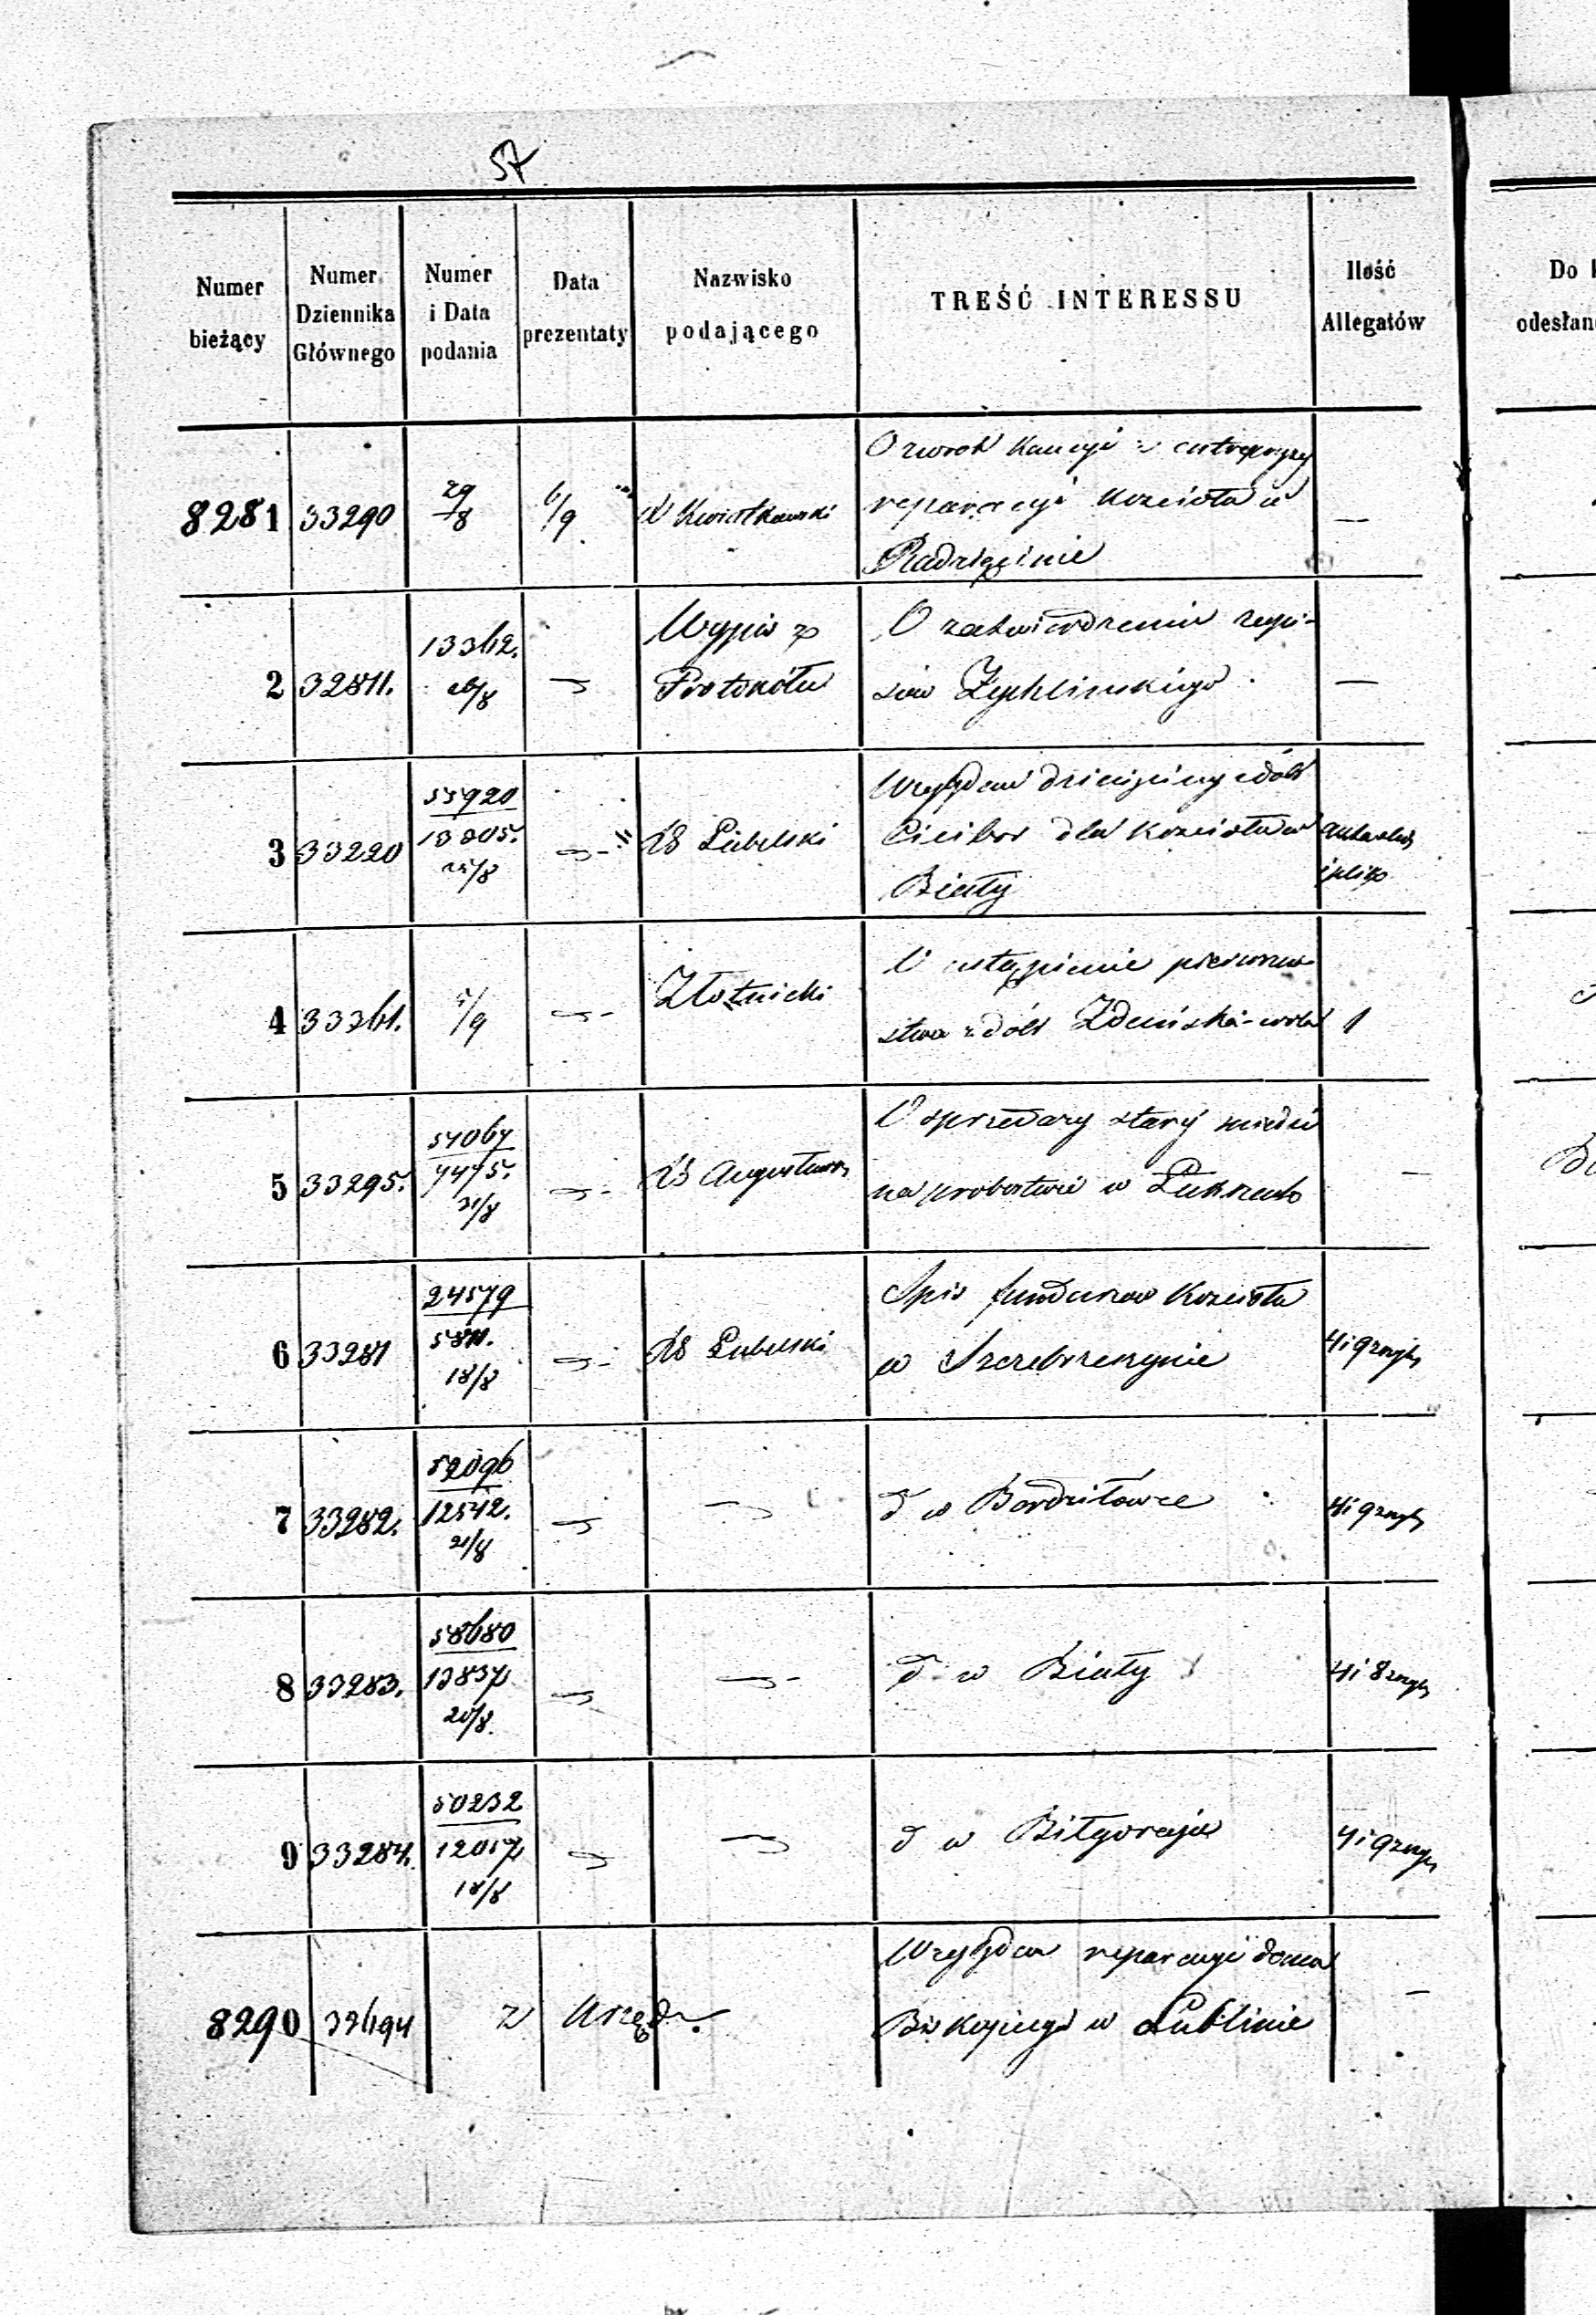 57
Numer bieżący
Numer Dziennika Głównego
Numer i Data podania
Data prezentaty
Nazwisko podającego
TREŚĆ INTERESSU
Ilość Allegatów
Do
odesłan
8281 33290 29/8 6/9 Kwiatkowski
O zwrot kaucyi z entrepryzy
reparacyi Kościoła w
Radzięcinie
—
2 32811. 13362. 26/8
Wypis z
Protokółu
O zatwierdzeniu
Zychlinskiego
—
3 33220 55920 13305. 25/8
Lubelski
Względem dziesięciny z dóbr
Cicibor dla kościoła w
Biały
4 33361. 5/9
Złotnicki
O ustąpienie pierwszeń
stwa z dóbr Zduńska-wola
1
5 33295. 54067 7475. 21/8
Augustows
O sprzedaży starej miedzi
na probostwie w
—
6 33281 24579 5811. 18/8
Lubelski
Spis funduszów Kościoła
w Szczebrzeszynie
4 i 9
7 33282. 52096 12542. 21/8
d w Bordziłówce
4 i 9
8 33283. 58680 13837 20/8.
d w Biały
4 i 8
9 33284. 50232 12017 18/8
d w Biłgoraju
4 i 9
8290 32694 z Urzędu.
Względem reparacyi domu
Biskupiego w Lublinie
—